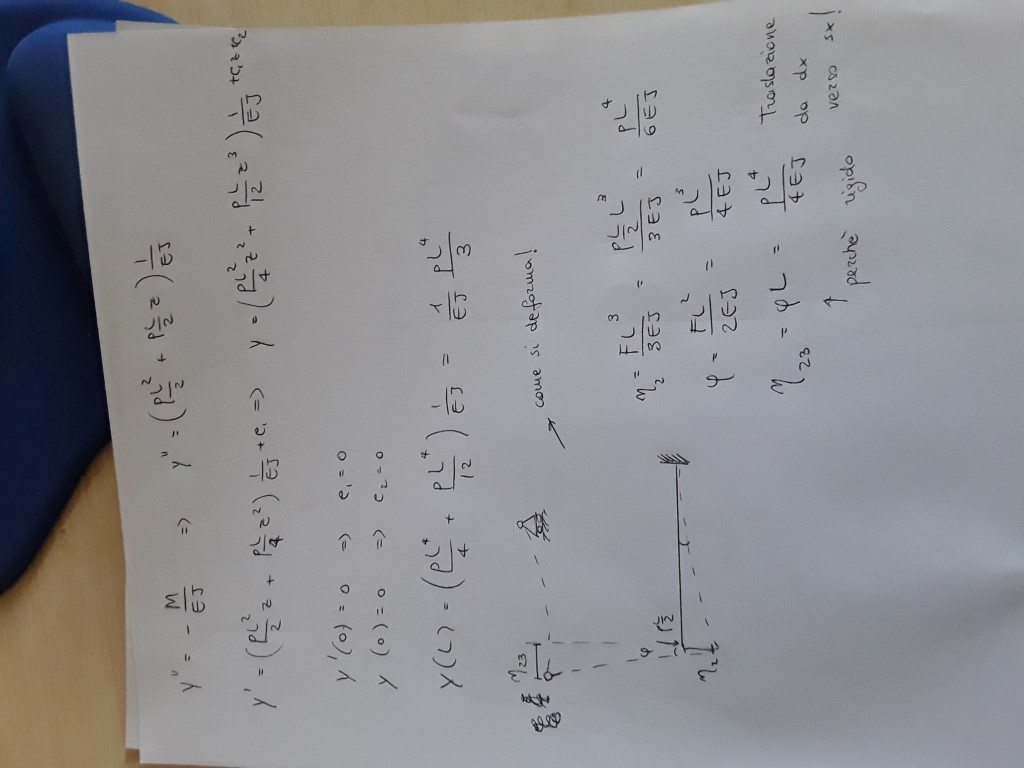 y'' = - M/EJ => y'' = (pL²/2 + pL/2 z) 1/EJ
y' = (pL²/2 z + pL/4 z²) 1/EJ + c₁ => y = (pL²/4 z² + pL/12 z³) 1/EJ + c₁z + c₂
y'(0) = 0 => c₁ = 0
y (0) = 0 => c₂ = 0
y(L) = (pL⁴/4 + pL⁴/12) 1/EJ = 1/EJ pL⁴/3
η₂₃
come si deforma!
φ
pL/2
η₂
η₂ = FL³/3EJ = pL/2 L³/3EJ = pL⁴/6EJ
φ = FL²/2EJ = pL³/4EJ
η₂₃ = φL = pL⁴/4EJ Traslazione
da dx
verso sx!
perchè rigido